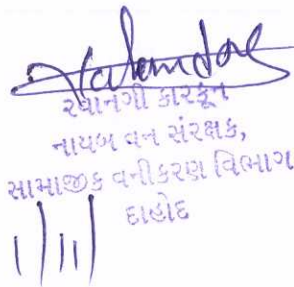 રવાનગી કારકૂન
નાયબ વન સંરક્ષક,
સામાજીક વનીકરણ વિભાગ
દાહોદ